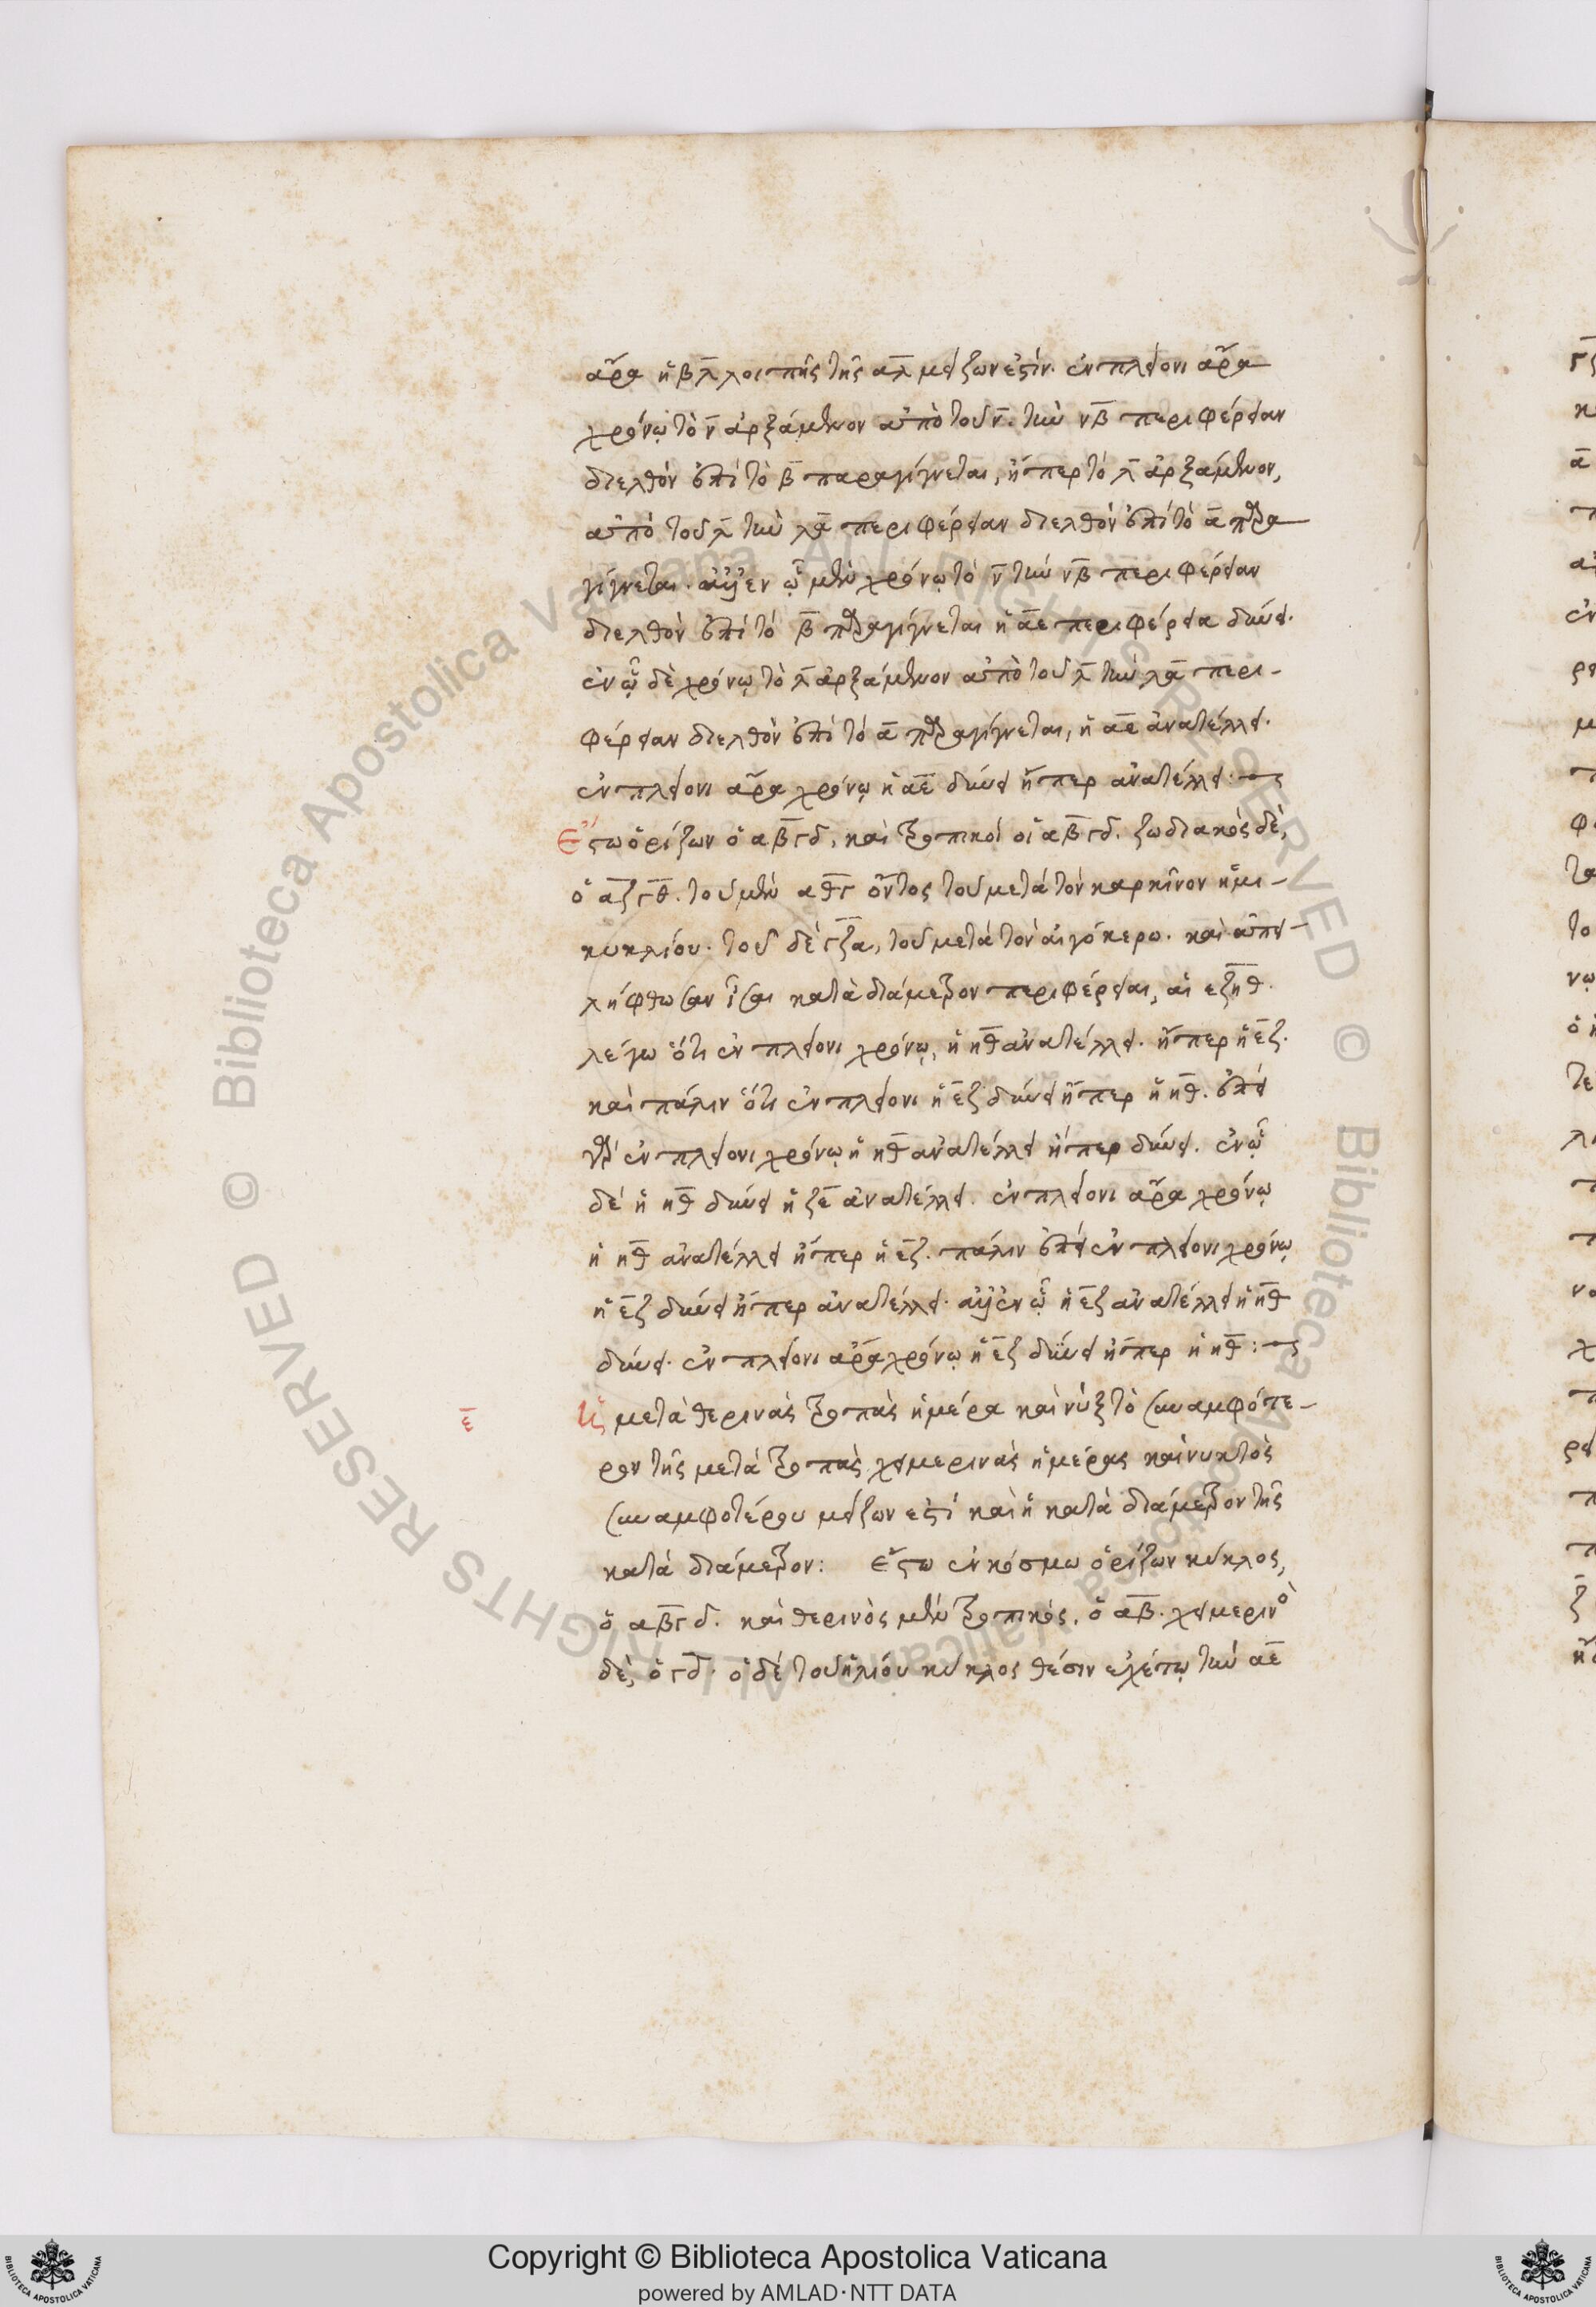 ἄρα ἡ β̅λ̅ λοιπῆς τῆς α̅λ̅ μείζων ἐστίν. ἐν πλείονι ἄρα
χρόνῳ τὸ ν̅ ἀρξάμενον ἀπὸ τοῦ ν̅. τὴν ν̅β̅ περιφέρειαν
διελθὸν ἐπὶ τὸ β̅ παραγίγνεται, ἤπερ τὸ λ̅ ἀρξάμενον,
ἀπὸ τοῦ λ̅ τὴν λ̅α̅ περιφέρειαν διελθὸν ἐπὶ τὸ α̅ παρα
γίγνεται. ἀλλ' ἐν ᾧ μὲν χρόνῳ τὸ ν̅ τὴν ν̅β̅ περιφέρειαν
διελθὸν ἐπὶ τὸ β̅ παραγίγνεται ἡ α̅ε̅ περιφέρεια δύνει.
ἐν ᾧ δὲ χρόνῳ τὸ λ̅ ἀρξάμενον ἀπὸ τοῦ λ̅ τὴν λ̅α̅ περι-
φέρειαν διελθὸν ἐπὶ τὸ α̅ παραγίγνεται, ἡ α̅ε̅ ἀνατέλλει.
ἐν πλείονι ἄρα χρόνῳ ἡ α̅ε̅ δύνει ἤπερ ἀνατέλλει:
Ἔστω ὁρίζων ὁ α̅β̅γ̅δ̅, καὶ τροπικοὶ οἱ α̅β̅ γ̅δ̅. ζωδιακὸς δὲ,
ὁ α̅ζ̅γ̅θ̅. τοῦ μὲν α̅θ̅γ̅ ὄντος τοῦ μετὰ τὸν καρκῖνον ἡμι-
κυκλίου. τοῦ δὲ γ̅ζ̅α̅, τοῦ μετὰ τὸν αἰγόκερω. καὶ ἀπει-
λήφθωσαν ἴσαι κατὰ διάμετρον περιφέρειαι, αἱ ε̅ζ̅ η̅θ̅.
λέγω ὅτι ἐν πλείονι χρόνῳ, ἡ η̅θ̅ ἀνατέλλει. ἤπερ ἡ ε̅ζ̅.
καὶ πάλιν ὅτι ἐν πλείονι ἡ ε̅ζ̅ δύνει ἤπερ ἡ η̅θ̅. ἐπεὶ
γὰρ ἐν πλείονι χρόνῳ ἡ η̅θ̅ ἀνατέλλει ἤπερ δύνει. ἐν ᾧ
δὲ ἡ η̅θ̅ δύνει ἡ ζ̅ε̅ ἀνατέλλει. ἐν πλείονι ἄρα χρόνῳ
ἡ η̅θ̅ ἀνατέλλει ἤπερ ἡ ε̅ζ̅. πάλιν ἐπεὶ ἐν πλείονι χρόνῳ
ἡ ε̅ζ̅ δύνει ἤπερ ἀνατέλλει. ἀλλ' ἐν ᾧ ἡ ε̅ζ̅ ἀνατέλλει ἡ η̅θ̅
δύνει. ἐν πλείονι ἄρα χρόνῳ ἡ ε̅ζ̅ δύνει ἤπερ ἡ η̅θ̅:
ε̅ Ἡ μετὰ θερινὰς τροπὰς ἡμέρα καὶ νὺξ τὸ συναμφότε-
ρον τῆς μετὰ τροπὰς χειμερινὰς ἡμέρας καὶ νυκτὸς
συναμφοτέρου μείζων ἐστὶ καὶ ἡ κατὰ διάμετρον τῆς
κατὰ διάμετρον: Ἔστω ἐν κόσμω ὁρίζων κύκλος,
ὁ α̅β̅γ̅δ̅. καὶ θερινὸς μὲν τροπικὸς, ὁ α̅β̅. χειμερινὸ
δὲ, ὁ γ̅δ̅. ὁ δὲ τοῦ ἡλίου κύκλος θέσιν ἐχέτω τὴν α̅ε̅
Copyright © Biblioteca Apostolica Vaticana
powered by AMLAD·NTT DATA